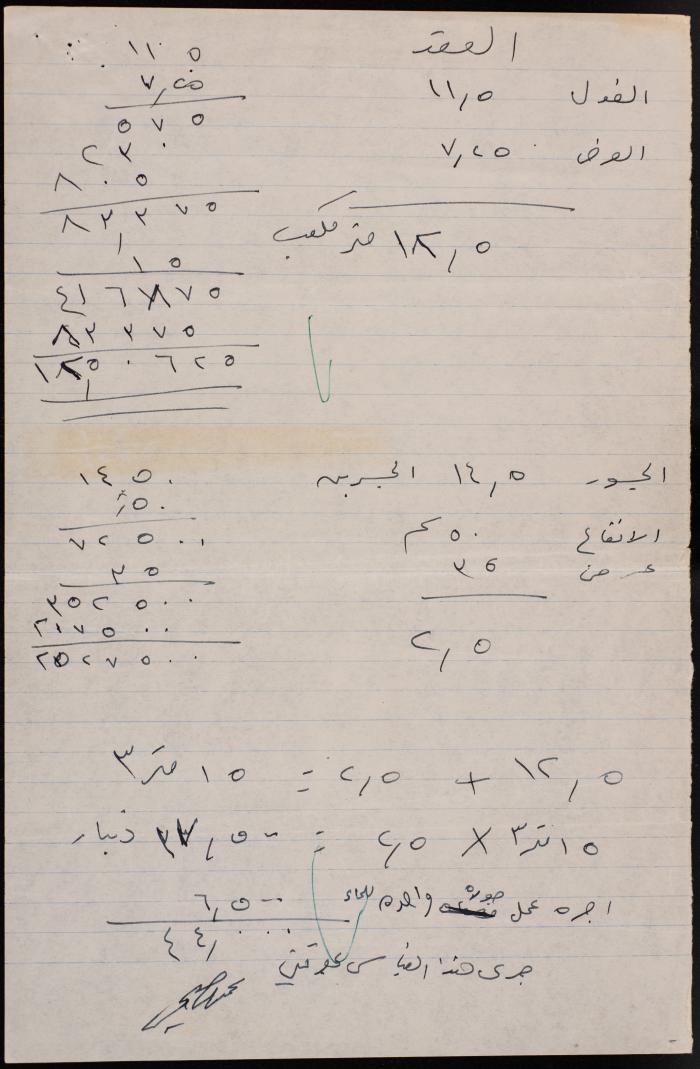 العقد
الطول ١١,٥
العرض ٧,٢٥
١٢,٥ متر مكعب
١١٥
٧,٢٥
٥٧٥
٢٣٠
٨٠٥
٨٣,٣٧٥
١٥
٤١٦٨٧٥
٨٣٣٧٥
١٢٥٠٦٢٥
الجسور ١٤,٥ الجسرين
الارتفاع ٥٠ سم
عرض ٣٥
٢,٥
١٤٥٠
٥٠
٧٢٥٠٠
٣٥
٣٦٢٥٠٠
٢١٧٥٠٠
٢٥٣٧٥٠٠
١٢,٥ + ٢,٥ = ١٥ متر٣
١٥ متر٣ X ٢,٥ = ٣٧,٥٠٠ دينار
اجره عمل جورة واحده للماء ٦,٥٠٠
٤٤,٠٠٠
جرى هذا القياس بمعرفتي